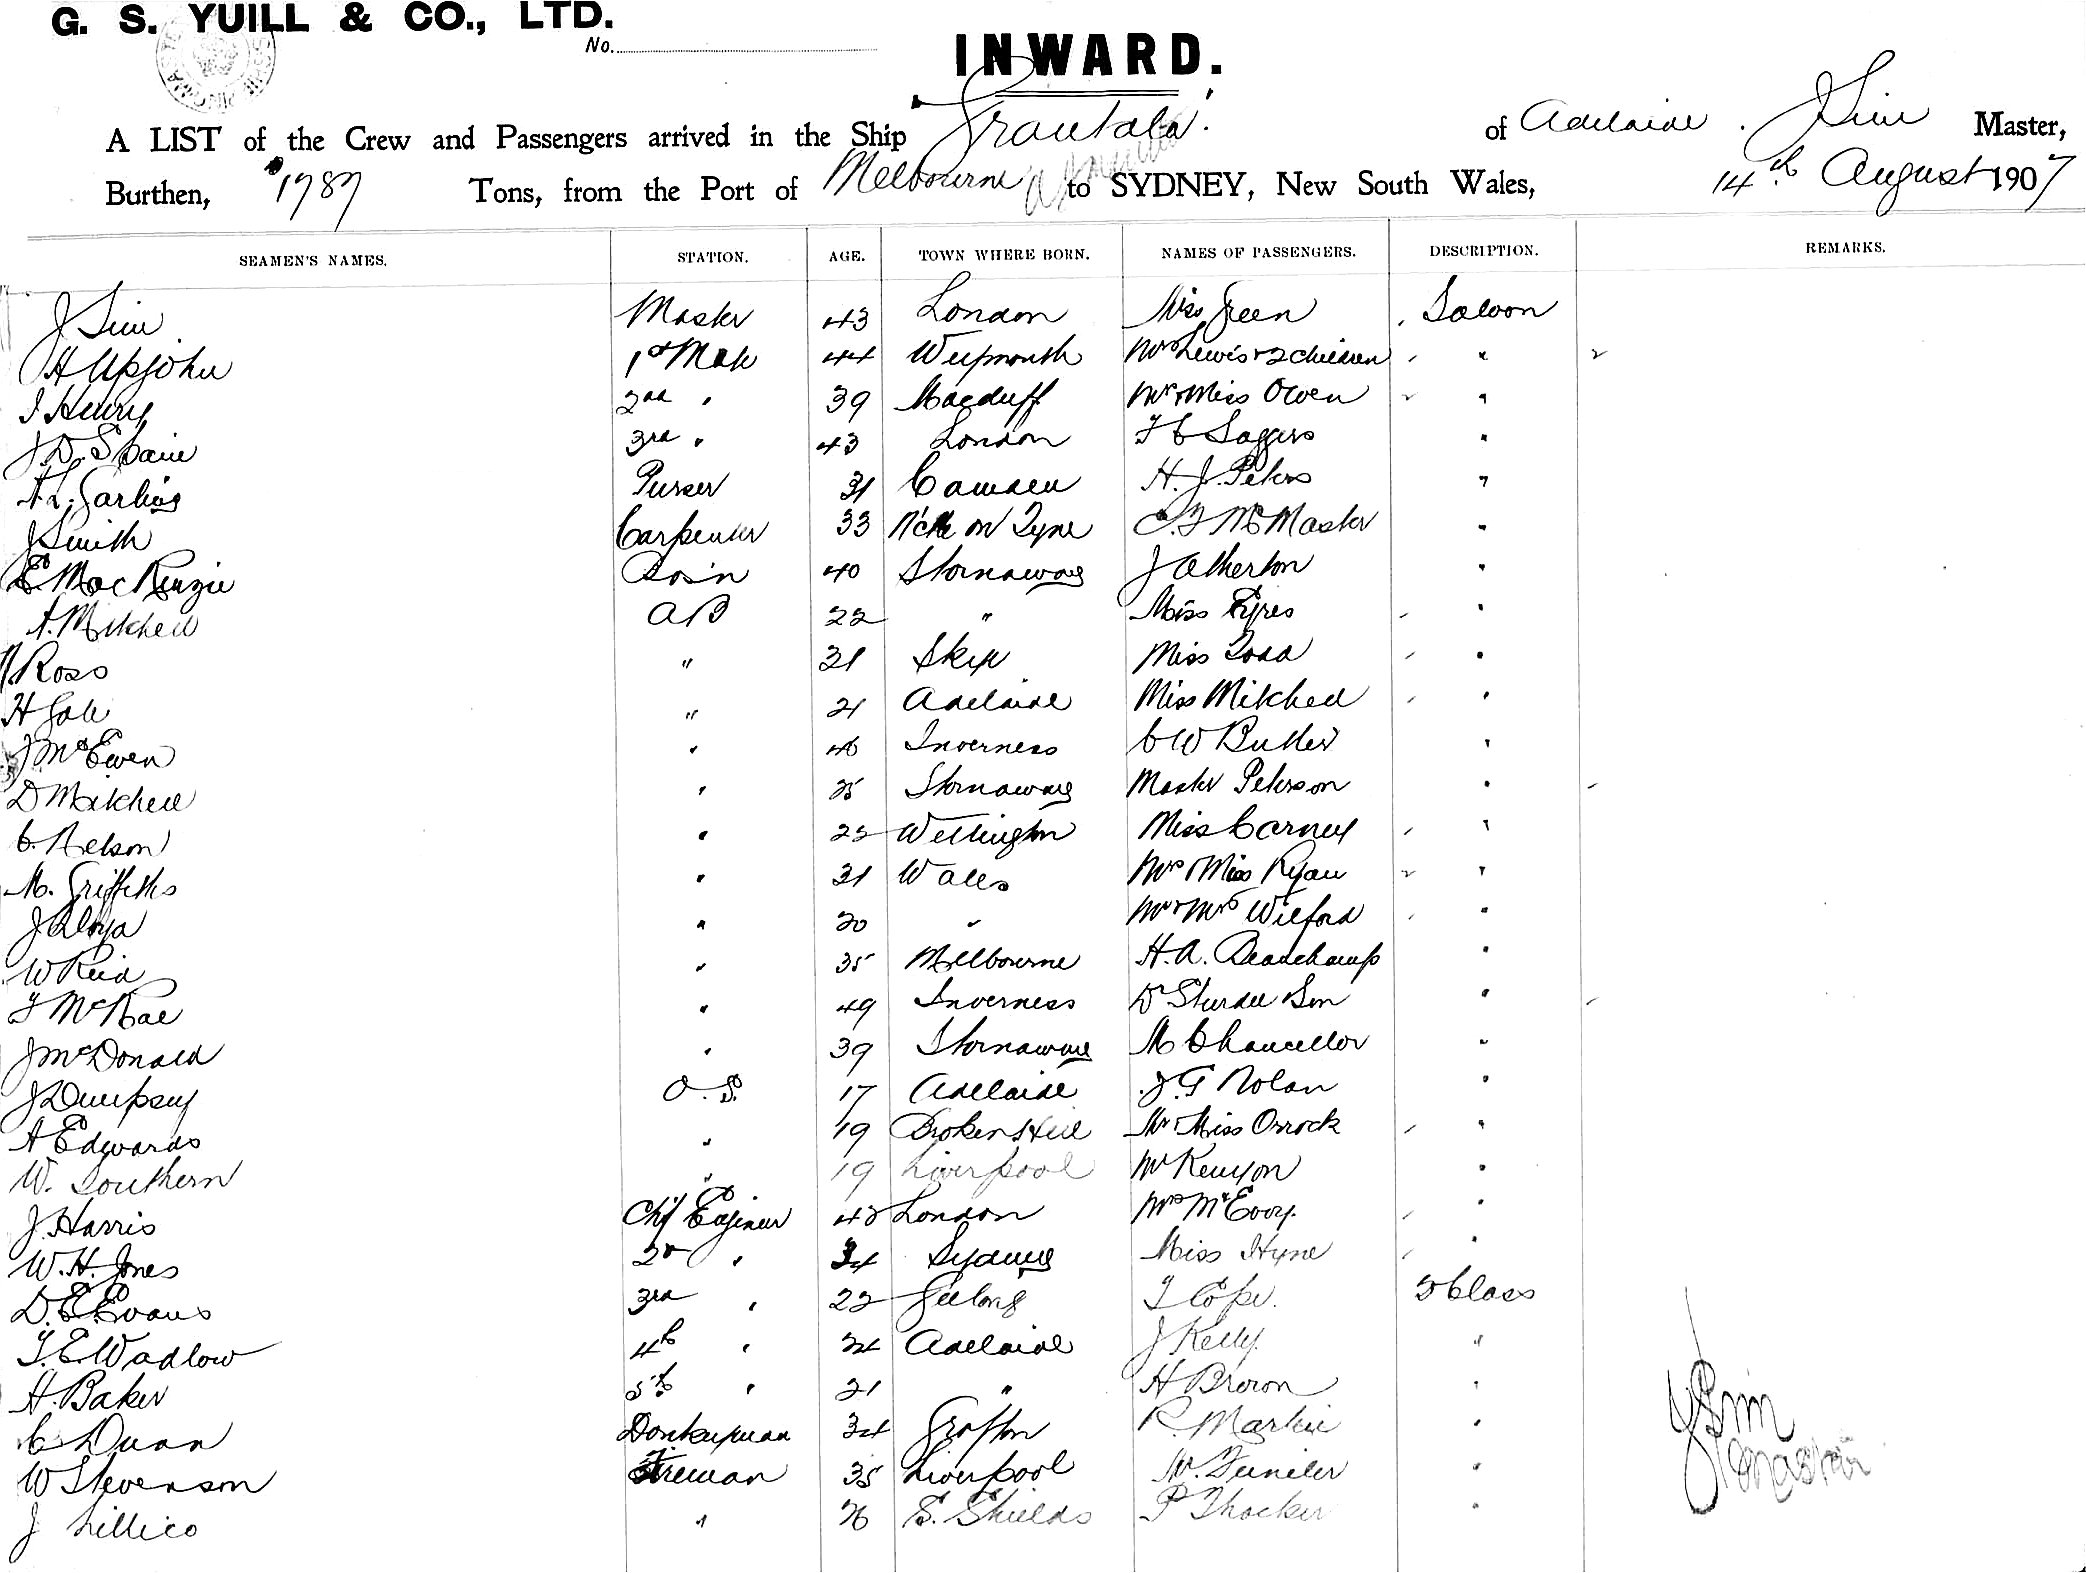 G. S. YUILL & CO., LTD.
No.
INWARD.
A LIST of the Crew and Passengers arrived in the Ship Grantala of Adelaide. J Sim Master,
Burthen, 1789 Tons, from the Port of Melbourne to SYDNEY, New South Wales, 14th August 1907
SEAMEN'S NAMES. STATION. AGE. TOWN WHERE BORN. NAMES OF PASSENGERS. DESCRIPTION. REMARKS.
J Sim Master 43 London Miss Green Saloon
H Upjohn 1st Mate 44 Weymouth Mrs Lewis & 2 children "
J Henry 2nd " 39 Macduff Mr & Miss Owen "
J D. Spain 3rd " 43 London "
A L. Garling Purser 31 Camden H. J. Peters "
J Smith Carpenter 33 N'cle on Tyne McMaster "
E. MacKenzie Bos'n 40 Stornaway J Atherton "
A. Mitchell AB 22 " Miss Eyres "
Ross " 21 Skye Miss Todd "
H Gale " 21 Adelaide Miss Mitchell "
J McEwen " 46 Inverness C W Butler "
D Mitchell " 25 Stornaway Master Peterson "
C. Nelson " 22 Wellington Miss Carney "
M. Griffiths " 31 Wales Mrs & Miss Ryan "
J " 20 " Mr & Mrs Wilford "
W Reid " 35 Melbourne H. A. Beauchamp "
F McRae " 49 Inverness Dr Sturdee & Son "
J McDonald " 39 Stornaway M Chancellor "
J Dempsey O. S. 17 Adelaide J. G Nolan "
A Edwards " 19 Broken Hill Mr & Miss Orrock "
W. Southern " 19 Liverpool Mr Kenyon "
J. Harris Chf Engineer 48 London Mrs McEvoy. "
W. H. Jones 2nd " 34 Sydney Miss Hyne "
D. E. Evans 3rd " 22 Geelong T Cope. 2 Class
T. E. Wadlow 4th " 24 Adelaide J Kelly. "
H. Baker 5th " 21 " H Brown "
C Dunn Donkeyman 34 Grafton R. Martin "
W Stevenson Fireman 35 Liverpool W. "
J Lillico " 26 S. Shields P Thacker "
J Sim
Master